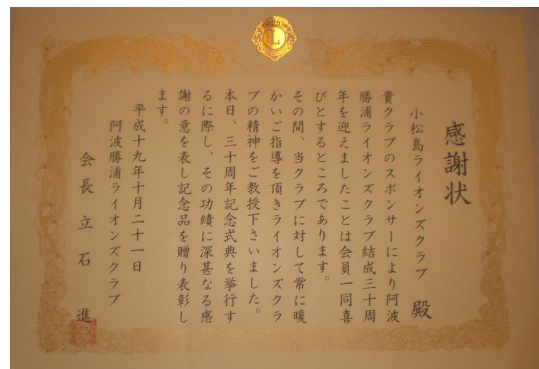 感謝状
小松島ライオンズクラブ 殿
貴クラブのスポンサーにより阿波
勝浦ライオンズクラブ結成三十周
年を迎えましたことは会員一同喜
びとするところであります。
その間、当クラブに対して常に暖
かいご指導を頂きライオンズクラ
ブの精神をご教授下さいました。
本日、三十周年記念式典を挙行す
るに際し、その功績に深甚なる感
謝の意を表し記念品を贈り表彰し
ます。
平成十九年十月二十一日
阿波勝浦ライオンズクラブ
会長 立石 進
L